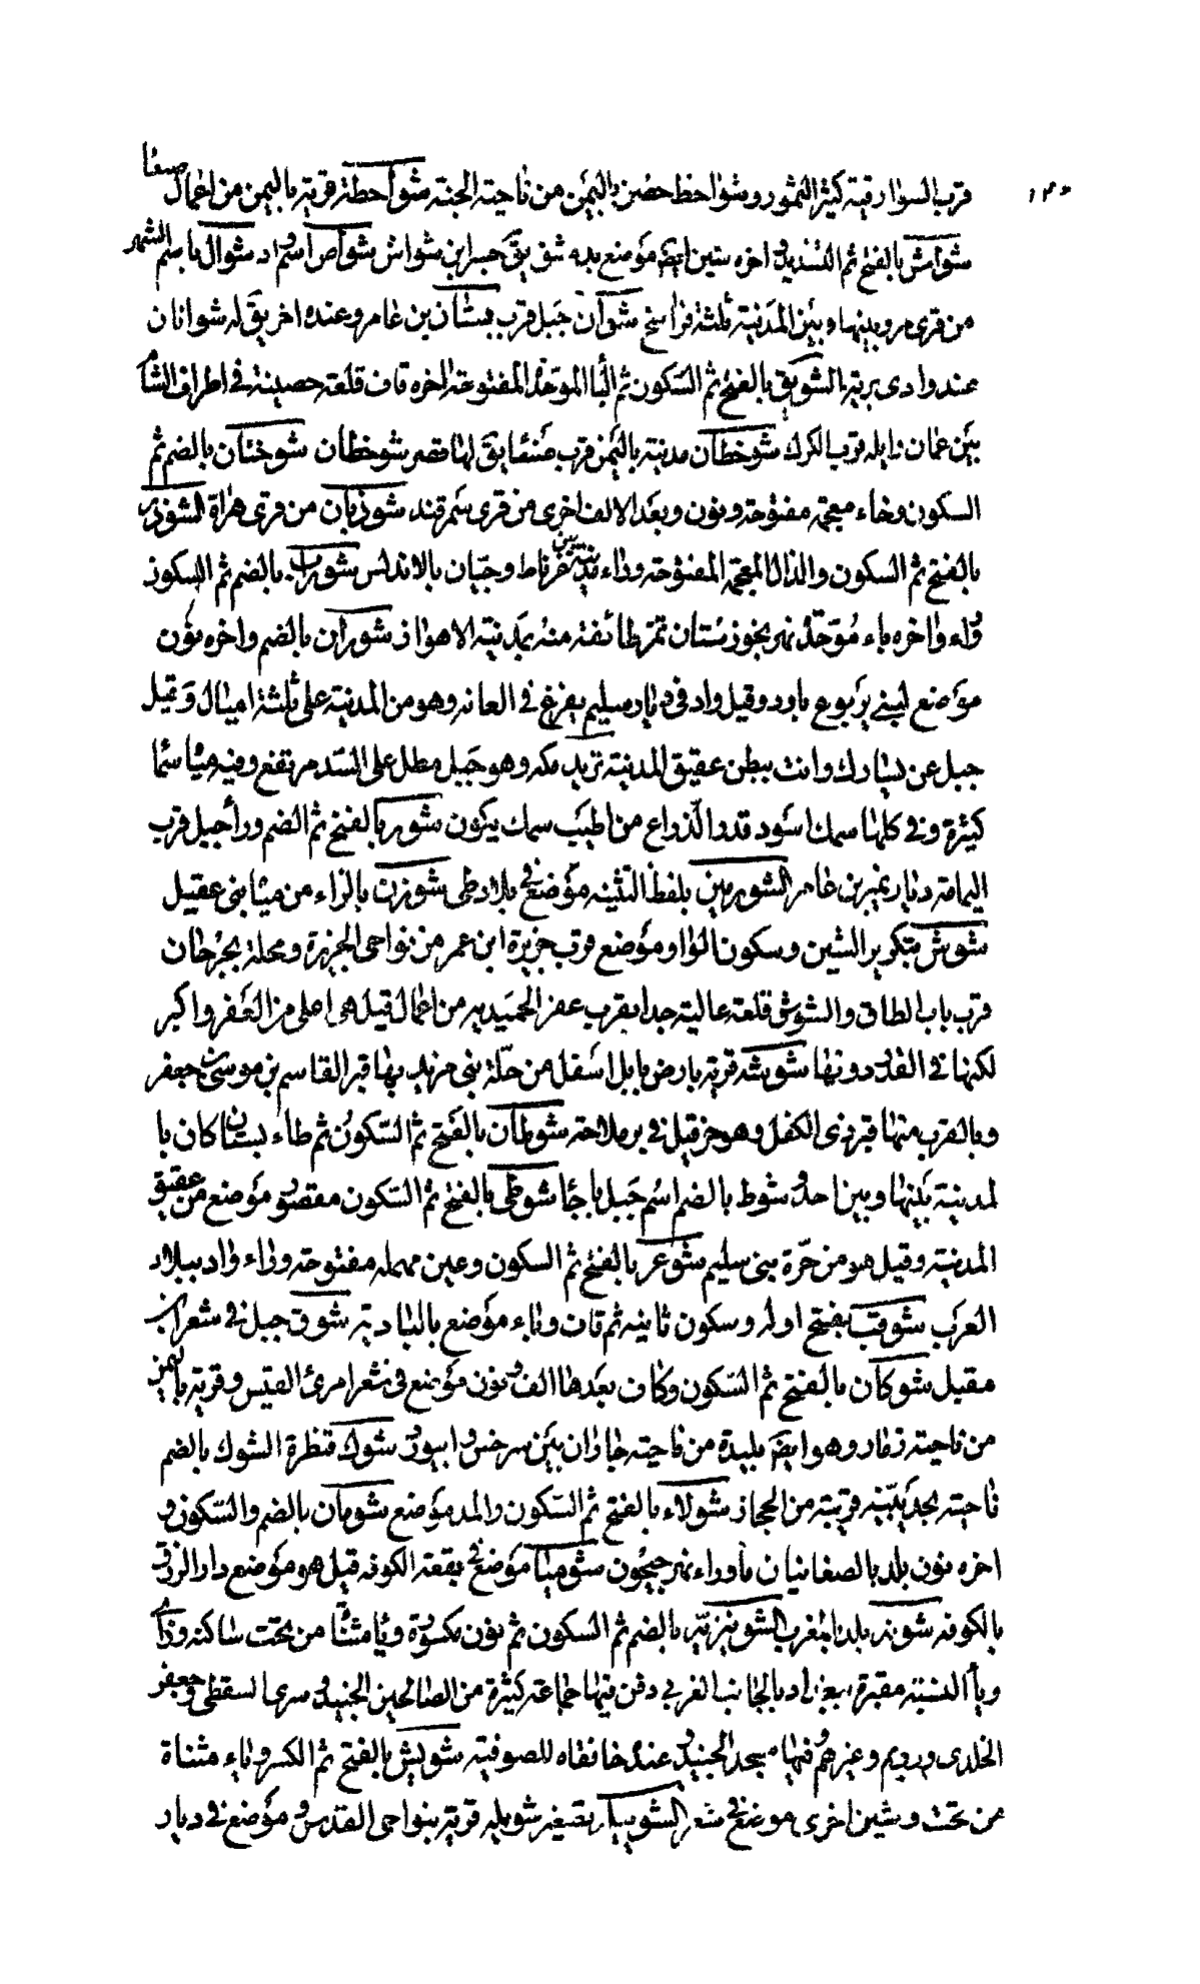 ١٣٠
قرب السوارقية كثير النمور وشواحظ حصن باليمن من ناحية الجنة شواحطة قرية باليمن من اعمال صنعا
شواش بالفتح ثم التشديد واخره شين ايضا موضع بدمشق يق جسر ابن شواش شواص اسم واد شوال باسم الشهر
من قرى مرو بينها وبين المدينة ثلثة فراسخ شوان جبل قرب بستان بن عامر وعنده اخر يق له شوانان
عند وادى برية الشوبق بالفتح ثم السكون ثم البا الموحدة المفتوحة اخره قاف قلعة حصينة في اطراف الشام
بين عمان وايله قرب الكرك شوخطان مدينة باليمن قرب صنعا يق لها قصر شوخطان شوخنان بالضم ثم
السكون وخاء معجمة مفتوحة ونون وبعد الالف اخرى من قرى سمرقند شوذبان من قرى هراة الشوذر
بالفتح ثم السكون والذال المعجمة المفتوحة وراء مدينة بين غرناط وجيان بالاندلس شوراب بالضم ثم السكون
وراء واخره باء موحدة نهر بخوزستان تمر طائفة منه بمدينة الاهواز شوران بالضم واخره نون
موضع لبنى يربوع باود وقيل واد في ديار سليم يفرغ في الغابة وهو من المدينة على ثلثة اميال وقيل
جبل عن يسارك وانت ببطن عقيق المدينة تريد مكه وهو جبل مطل على السد مرتفع وفيه مياه سما
كثيرة وفي كلها سمك اسود قدر الذراع من اطيب سمك يكون شور بالفتح ثم الضم ورا جبل قرب
اليمامة ديار نمير بن عامر الشورمين بلفظ التثنيه موضع في بلاد طى شوزن بالزاء من مياه بنى عقيل
شوش بتكرير الشين وسكون الواو موضع قرب جزيرة ابن عمر من نواحى الجزيرة ومحلة بجرجان
قرب باب الطاق والشوش قلعة عالية جدا بقرب عقر الحميديه من اعمال قيل هى اعلى من العقر واكبر
لكنها في القدر دونها شوشه قرية بارض بابل اسفل من حلة بنى مزيد بها قبر القاسم بن موسى بن جعفر
وبالقرب منها قبر ذى الكفل وهو حزقيل في بر ملاحة شوطان بالفتح ثم السكون ثم طاء بستان كان با
لمدينة بينها وبين احد شوط بالضم اسم جبل باجئا شوطى بالفتح ثم السكون مقصور موضع من عقيق
المدينة وقيل هو من حرة بنى سليم شوعر بالفتح ثم السكون وعين مهمله مفتوحة وراء واد ببلاد
العرب شوقب بفتح اوله وسكون ثانيه ثم قاف وباء موضع بالبادية شوق جبل في شعر ابن
مقبل شوكان بالفتح ثم السكون وكاف بعدها الف ونون موضع في شعر امرئ القيس وقرية باليمن
من ناحية ذمار وهو ايضا بليدة من ناحية خابران بين سرخس وابيورد شوك قنطرة الشوك بالضم
ناحية نجدية قريبة من الحجاز شولاء بالفتح ثم السكون والمد موضع شومان بالضم والسكون و
اخره نون بلد بالصغانيان ماوراء نهر جيحون شوميا موضع في بقعة الكوفه قيل هو موضع دار الرزق
بالكوفه شونه بلد بالمغرب الشونيزيه بالضم ثم السكون ثم نون مكسورة ويا مثناة من تحت ساكنة وزاء
ويأ النسبة مقبرة ببغداد بالجانب الغربي دفن فيها جماعة كثيرة من الصالحين الجنيد وسرى السقطى وجعفر
الخلدى ورويم وغيرهم وفيها مسجد الجنيد وعنده خانقاه للصوفية شويش بالفتح ثم الكسر وياء مثناة
من تحت وشين اخرى موضع في شعر الشويلا بتصغير شويله قرية بنواحى القدس وموضع في ديار